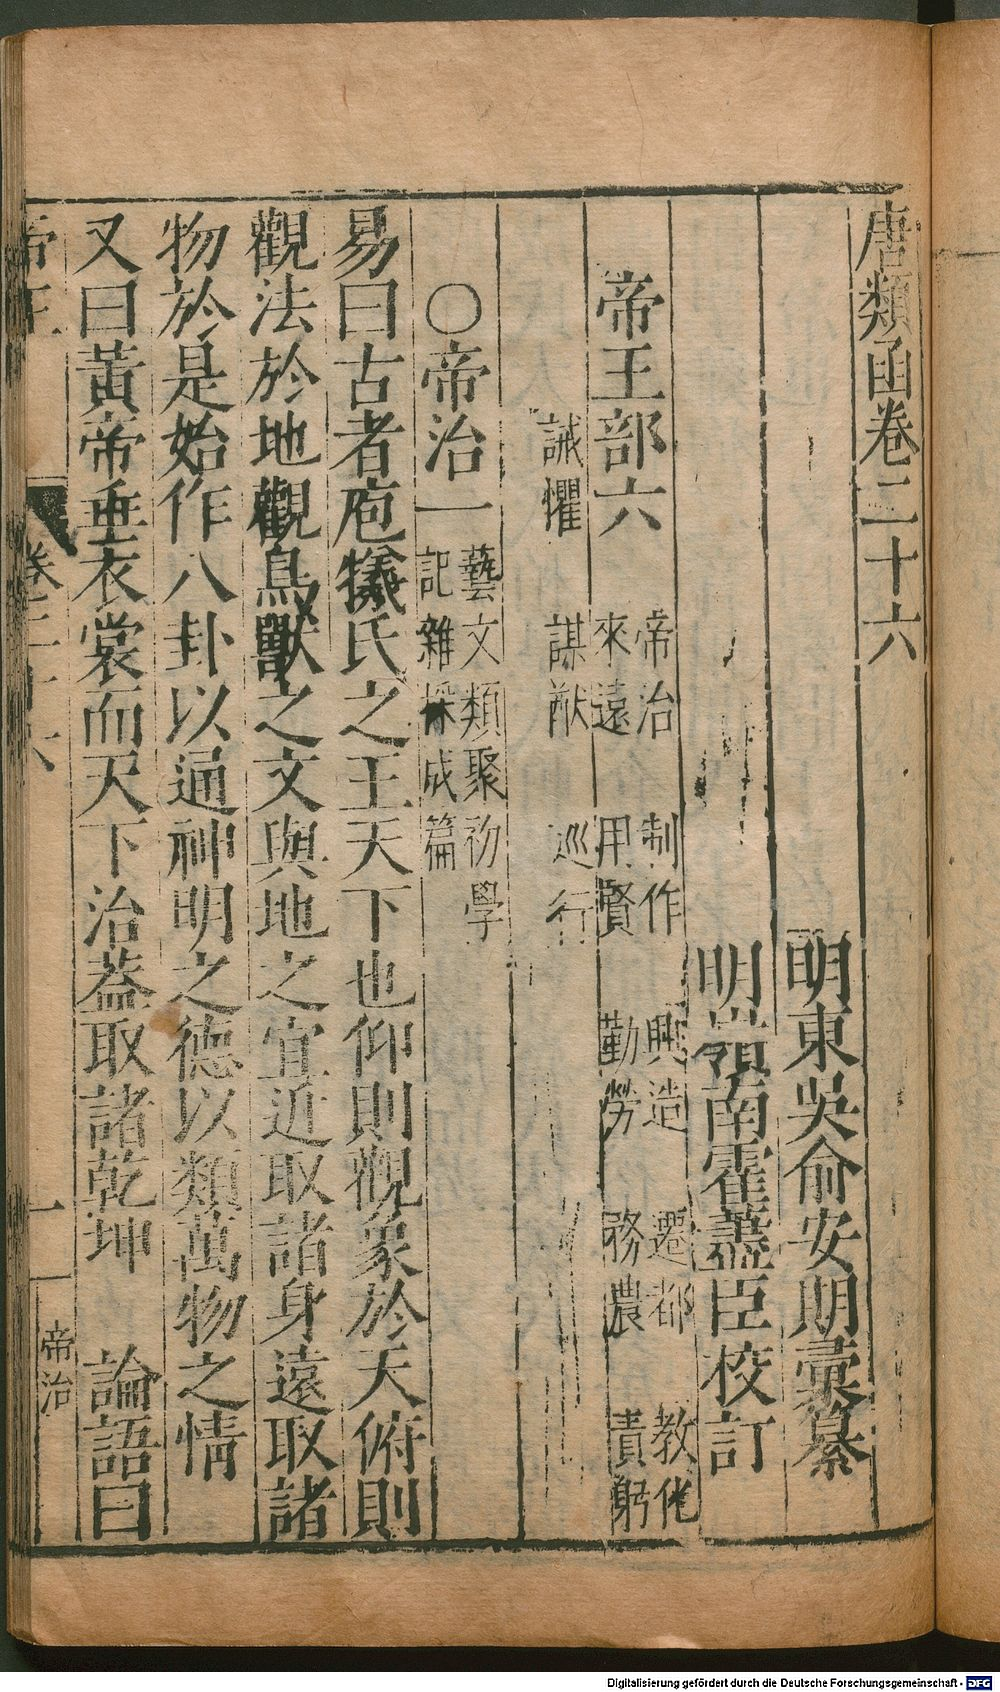 唐類函卷二十六
明東吳俞安期彙纂
明嶺南霍藎臣校訂
帝王部六
帝治 制作 興造 遷都 教化
來遠 用賢 勤勞 務農 責躬
誡懼 謀猷 巡行
○帝治一
藝文類聚初學
記雜採成篇
易曰古者庖犧氏之王天下也仰則觀象於天俯則
觀法於地觀鳥獸之文與地之宜近取諸身遠取諸
物於是始作八卦以通神明之德以類萬物之情
又曰黃帝垂衣裳而天下治蓋取諸乾坤 論語曰
帝王 卷二十六 一 帝治
Digitalisierung gefördert durch die Deutsche Forschungsgemeinschaft - DFG